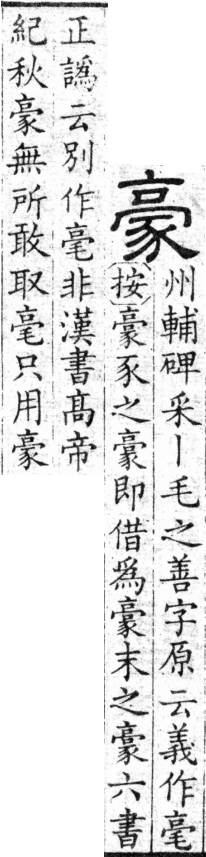 豪
州輔碑采丨毛之善字原云義作毫
按豪豕之豪即借爲豪末之豪六書
正譌云別作毫非漢書髙帝
紀秋豪無所敢取毫只用豪